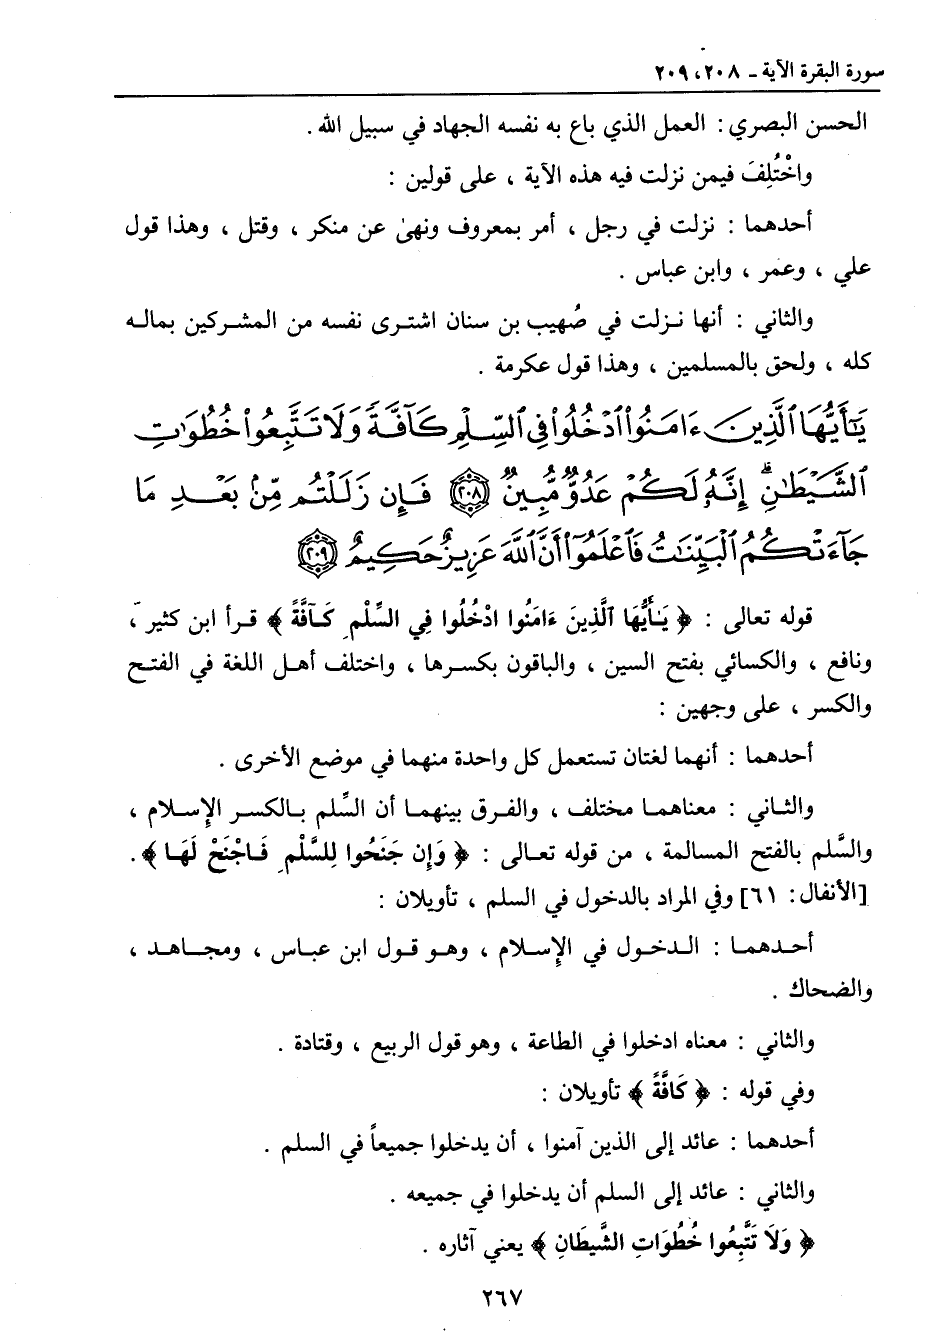 سورة البقرة الآية ـ ٢٠٨، ٢٠٩
الحسن البصري : العمل الذي باع به نفسه الجهاد في سبيل الله .
واخْتُلِفَ فيمن نزلت فيه هذه الآية ، على قولين :
أحدهما : نزلت في رجل ، أمر بمعروف ونهىٰ عن منكر ، وقتل ، وهذا قول
علي ، وعمر ، وابن عباس .
والثاني : أنها نـزلت في صُهيب بن سنان اشترى نفسه من المشركين بمالـه
كله ، ولحق بالمسلمين ، وهذا قول عكرمة .
يَٰٓأَيُّهَا ٱلَّذِينَ ءَامَنُوا۟ ٱدْخُلُوا۟ فِى ٱلسِّلْمِ كَآفَّةً وَلَا تَتَّبِعُوا۟ خُطُوَٰتِ
ٱلشَّيْطَٰنِ ۚ إِنَّهُۥ لَكُمْ عَدُوٌّ مُّبِينٌ ﴿٢٠٨﴾ فَإِن زَلَلْتُم مِّنۢ بَعْدِ مَا
جَآءَتْكُمُ ٱلْبَيِّنَٰتُ فَٱعْلَمُوٓا۟ أَنَّ ٱللَّهَ عَزِيزٌ حَكِيمٌ ﴿٢٠٩﴾
قوله تعالى : ﴿ يَـٰأَيُّهَا ٱلَّذِينَ ءَامَنُوا ادْخُلُوا فِي السِّلْمِ كَـآفَّةً ﴾ قـرأ ابن كثير ،
ونافع ، والكسائي بفتح السين ، والباقون بكسرها ، واختلف أهـل اللغة في الفتـح
والكسر ، على وجهين :
أحدهما : أنهما لغتان تستعمل كل واحدة منهما في موضع الأخرى .
والثـاني : معناهمـا مختلف ، والفـرق بينهمـا أن السِّلم بـالكسر الإِسـلام ،
والسَّلم بالفتح المسالمة ، من قوله تعـالى : ﴿ وَإِن جَنَحُوا لِلسَّلْمِ فَـاجْنَحْ لَهَـا ﴾ .
[الأنفال : ٦١] وفي المراد بالدخول في السلم ، تأويلان :
أحـدهمـا : الـدخـول في الإِسـلام ، وهـو قـول ابن عبـاس ، ومجـاهـد ،
والضحاك .
والثاني : معناه ادخلوا في الطاعة ، وهو قول الربيع ، وقتادة .
وفي قوله : ﴿ كَافَّةً ﴾ تأويلان :
أحدهما : عائد إلى الذين آمنوا ، أن يدخلوا جميعاً في السلم .
والثاني : عائد إلى السلم أن يدخلوا في جميعه .
﴿ وَلَا تَتَّبِعُوا خُطُوَاتِ الشَّيطَانِ ﴾ يعني آثاره .
٢٦٧